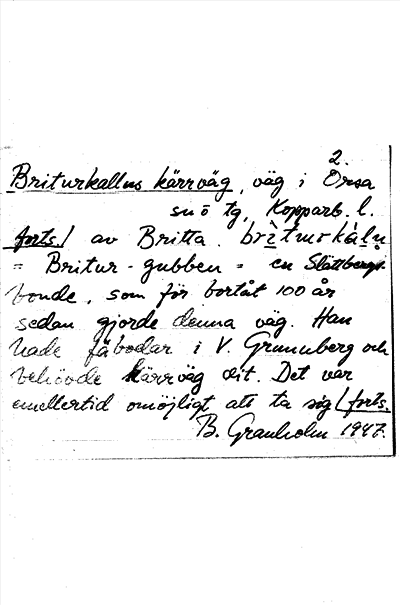 2.
Briturkallns kärrväg, väg i Orsa
snö tg, Kopparb. l.
forts./ av Britta. brìtuṛkàḷn
= Britur-gubben = en Slättbergs-
bonde, som för bortåt 100 år
sedan gjorde denna väg. Han
hade fäbodar i V. Grunuberg och
behövde kärrväg dit. Det var
emellertid omöjligt att ta sig /forts.
B. Granholm 1947.